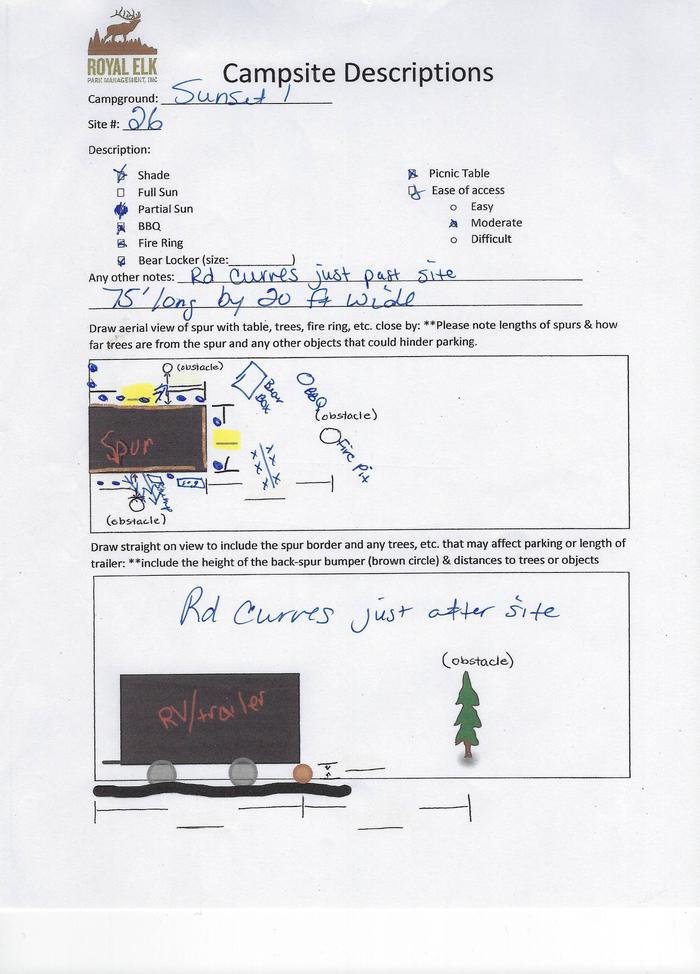 ROYAL ELK
PARK MANAGEMENT, INC
Campsite Descriptions
Campground: Sunset 1
Site #: 26
Description:
Shade
Full Sun
Partial Sun
BBQ
Fire Ring
Bear Locker (size:__________)
Picnic Table
Ease of access
Easy
Moderate
Difficult
Any other notes: Rd curves just past site
75' long by 20 ft wide
Draw aerial view of spur with table, trees, fire ring, etc. close by: **Please note lengths of spurs & how
far trees are from the spur and any other objects that could hinder parking.
(obstacle)
Bear
Box
BBQ
(obstacle)
Spur
Fire Pit
(obstacle)
Draw straight on view to include the spur border and any trees, etc. that may affect parking or length of
trailer: **include the height of the back-spur bumper (brown circle) & distances to trees or objects
Rd Curves just after site
(obstacle)
RV/trailer